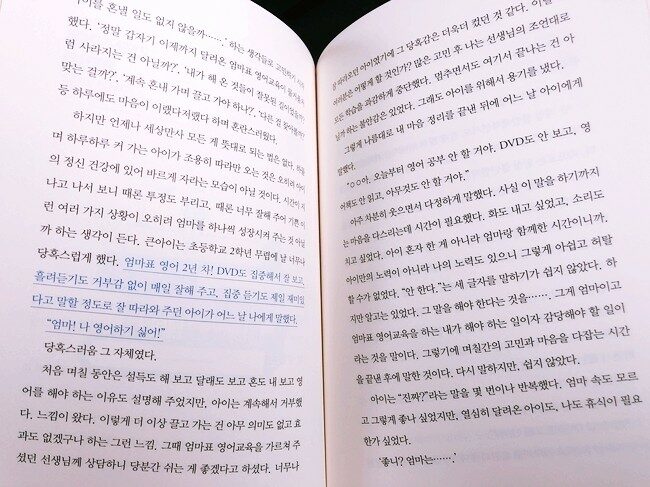 아이를 혼낼 일도 없지 않을까…….' 하는 생각들로 고민하기
했다. '정말 갑자기 이제까지 달려온 엄마표 영어교육이 물거품처
럼 사라지는 건 아닐까?', '내가 해 온 것들이 잘못된 길이었을까?
맞는 걸까?', '계속 혼내 가며 끌고 가야 하나?', '다른 집
등 하루에도 마음이 이랬다저랬다 하며 혼란스러웠다.
하지만 언제나 세상만사 모든 게 뜻대로 되는 법은 없다. 하물
며 하루하루 커 가는 아이가 조용히 따라만 오는 것은 오히려 아이
의 정신 건강에 있어 바르게 자라는 모습이 아닐 것이다. 시간이 지
나고 나서 보니 때론 투정도 부리고, 때론 너무 잘해 주어 기쁜 이
런 여러 가지 상황이 오히려 엄마를 하나씩 성장시켜 주는 것 아닐
까 하는 생각이 든다. 큰아이는 초등학교 2학년 무렵에 날 너무나
당혹스럽게 했다. 엄마표 영어 2년 차! DVD도 집중해서 잘 보고,
흘려듣기도 거부감 없이 매일 잘해 주고, 집중 듣기도 제일 재미있
다고 말할 정도로 잘 따라와 주던 아이가 어느 날 나에게 말했다.
"엄마! 나 영어하기 싫어!"
당혹스러움 그 자체였다.
처음 며칠 동안은 설득도 해 보고 달래도 보고 혼도 내 보고 영
어를 해야 하는 이유도 설명해 주었지만, 아이는 계속해서 거부했
다. 느낌이 왔다. 이렇게 더 이상 끌고 가는 건 아무 의미도 없고 효
과도 없겠구나 하는 그런 느낌. 그때 엄마표 영어교육을 가르쳐 주
셨던 선생님께 상담하니 당분간 쉬는 게 좋겠다고 하셨다. 너무나
잘 따라오던 아이였기에 그 당혹감은 더욱더 컸던 것 같다. 이럴
어떻게 할 것인가? 많은 고민 후 나는 선생님의 조언대로
모든 학습을 과감하게 중단했다. 멈추면서도 여기서 끝나는 건 아
닐까 하는 불안감은 있었다. 그래도 아이를 위해서 용기를 냈다.
그렇게 나름대로 내 마음 정리를 끝낸 뒤에 어느 날 아이에게
말했다.
"○○야. 오늘부터 영어 공부 안 할 거야. DVD도 안 보고, 영
어책도 안 읽고, 아무것도 안 할 거야."
아주 차분히 웃으면서 다정하게 말했다. 사실 이 말을 하기까지
는 마음을 다스리는데 시간이 필요했다. 화도 내고 싶었고, 소리도
치고 싶었다. 아이 혼자 한 게 아니라 엄마랑 함께한 시간이니까,
아이만의 노력이 아니라 나의 노력도 있으니 그렇게 아쉽고 허탈
할 수가 없었다. "안 한다."는 세 글자를 말하기가 쉽지 않았다. 하
지만 알고는 있었다. 그 말을 해야 한다는 것을……. 그게 엄마이고
엄마표 영어교육을 하는 내가 해야 하는 일이자 감당해야 할 일이
라는 것을 말이다. 그렇기에 며칠간의 고민과 마음을 다잡는 시간
을 끝낸 후에 말한 것이다. 다시 말하지만, 쉽지 않았다.
아이는 "진짜?"라는 말을 몇 번이나 반복했다. 엄마 속도 모르
고 그렇게 좋나 싶었지만, 열심히 달려온 아이도, 나도 휴식이 필요
한가 싶었다.
'좋니? 엄마는…….'